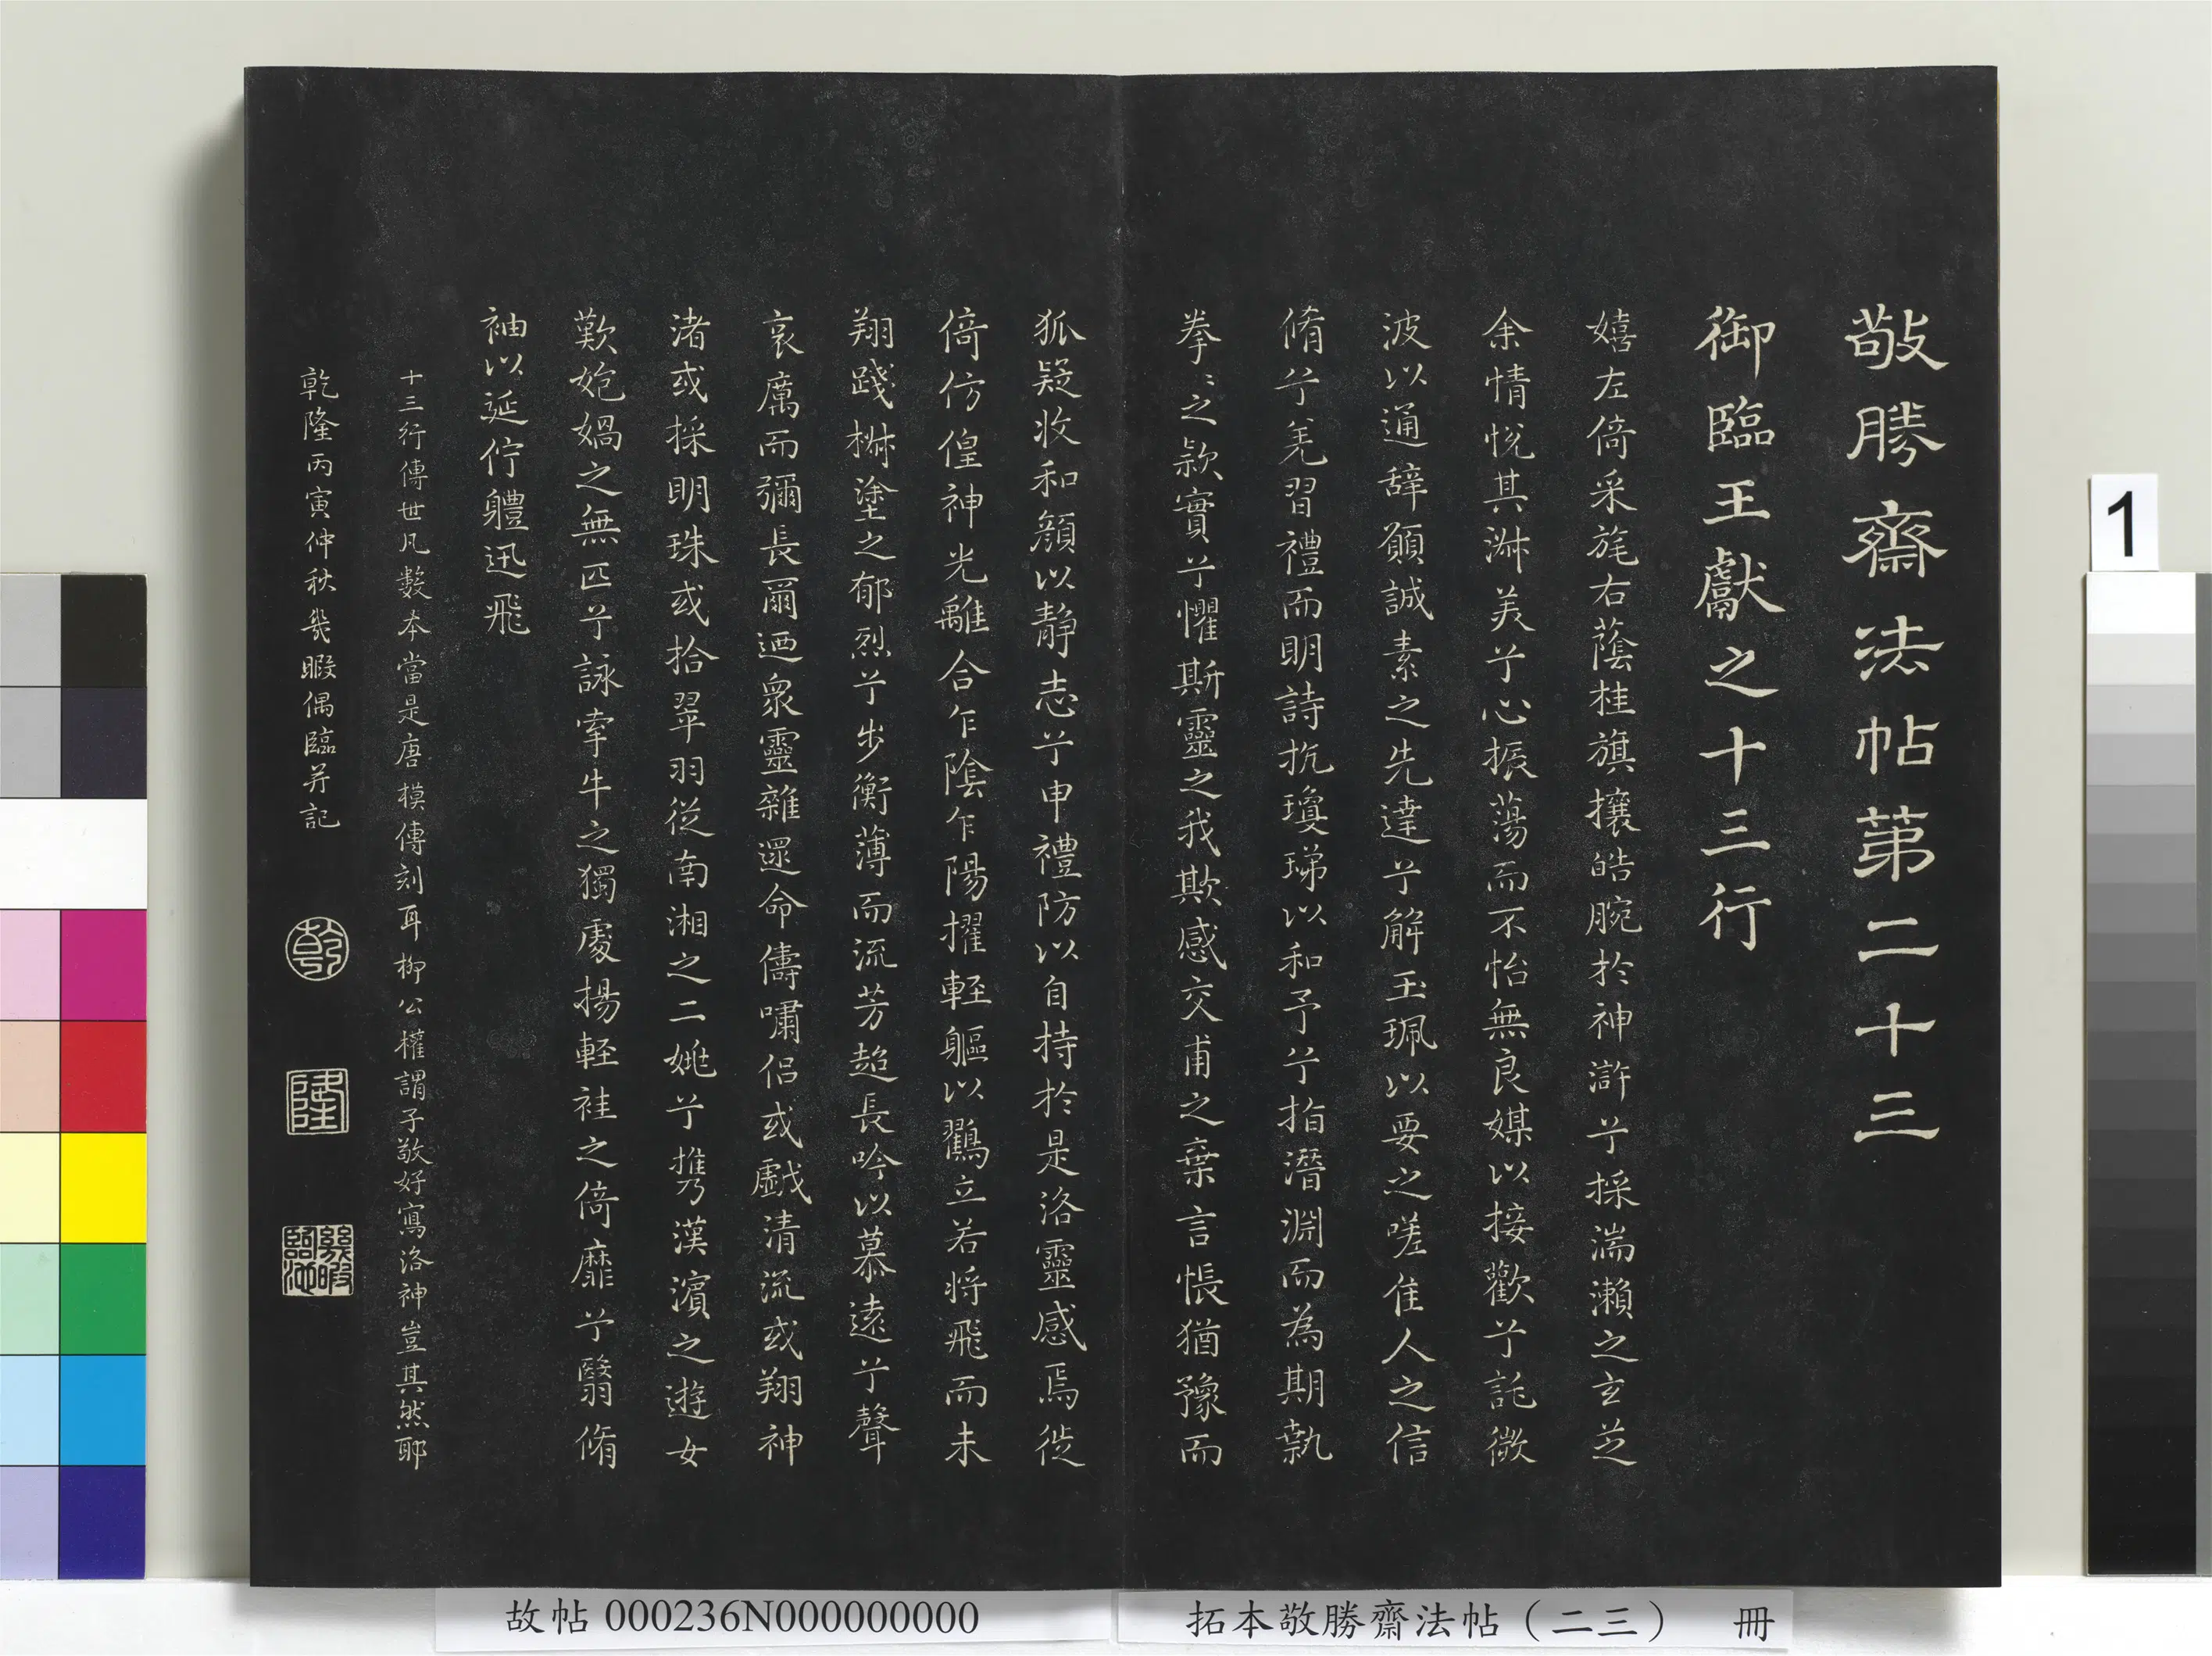 敬勝齋法帖第二十三
御臨王獻之十三行
嬉左倚采旄右蔭桂旗攘皓腕於神滸兮採湍瀨之玄芝
余情悅其淑美兮心振蕩而不怡無良媒以接歡兮託微
波以通辭願誠素之先達兮解玉珮以要之嗟佳人之信
脩兮羌習禮而明詩抗瓊珶以和予兮指潛淵而為期執
拳〻之款實兮懼斯靈之我欺感交甫之棄言悵猶豫而
狐疑收和顏以靜志兮申禮防以自持於是洛靈感焉徙
倚仿偟神光離合乍陰乍陽擢輕軀以鶴立若將飛而未
翔踐椒塗之郁烈兮步衡薄而流芳超長吟以慕遠兮聲
哀厲而彌長爾迺眾靈雜遝命儔嘯侶或戲清流或翔神
渚或採明珠或拾翠羽從南湘之二姚兮攜漢濱之遊女
歎㚿媧之無匹兮詠牽牛之獨處揚輕袿之倚靡兮翳脩
袖以延佇軆迅飛
十三行傳世凡數本當是唐模傳刻耳柳公權謂子敬好寫洛神豈其然耶
乾隆丙寅仲秋幾暇偶臨并記
乾
隆
幾暇臨池
故帖000236N000000000
拓本敬勝齋法帖（二三） 冊
1